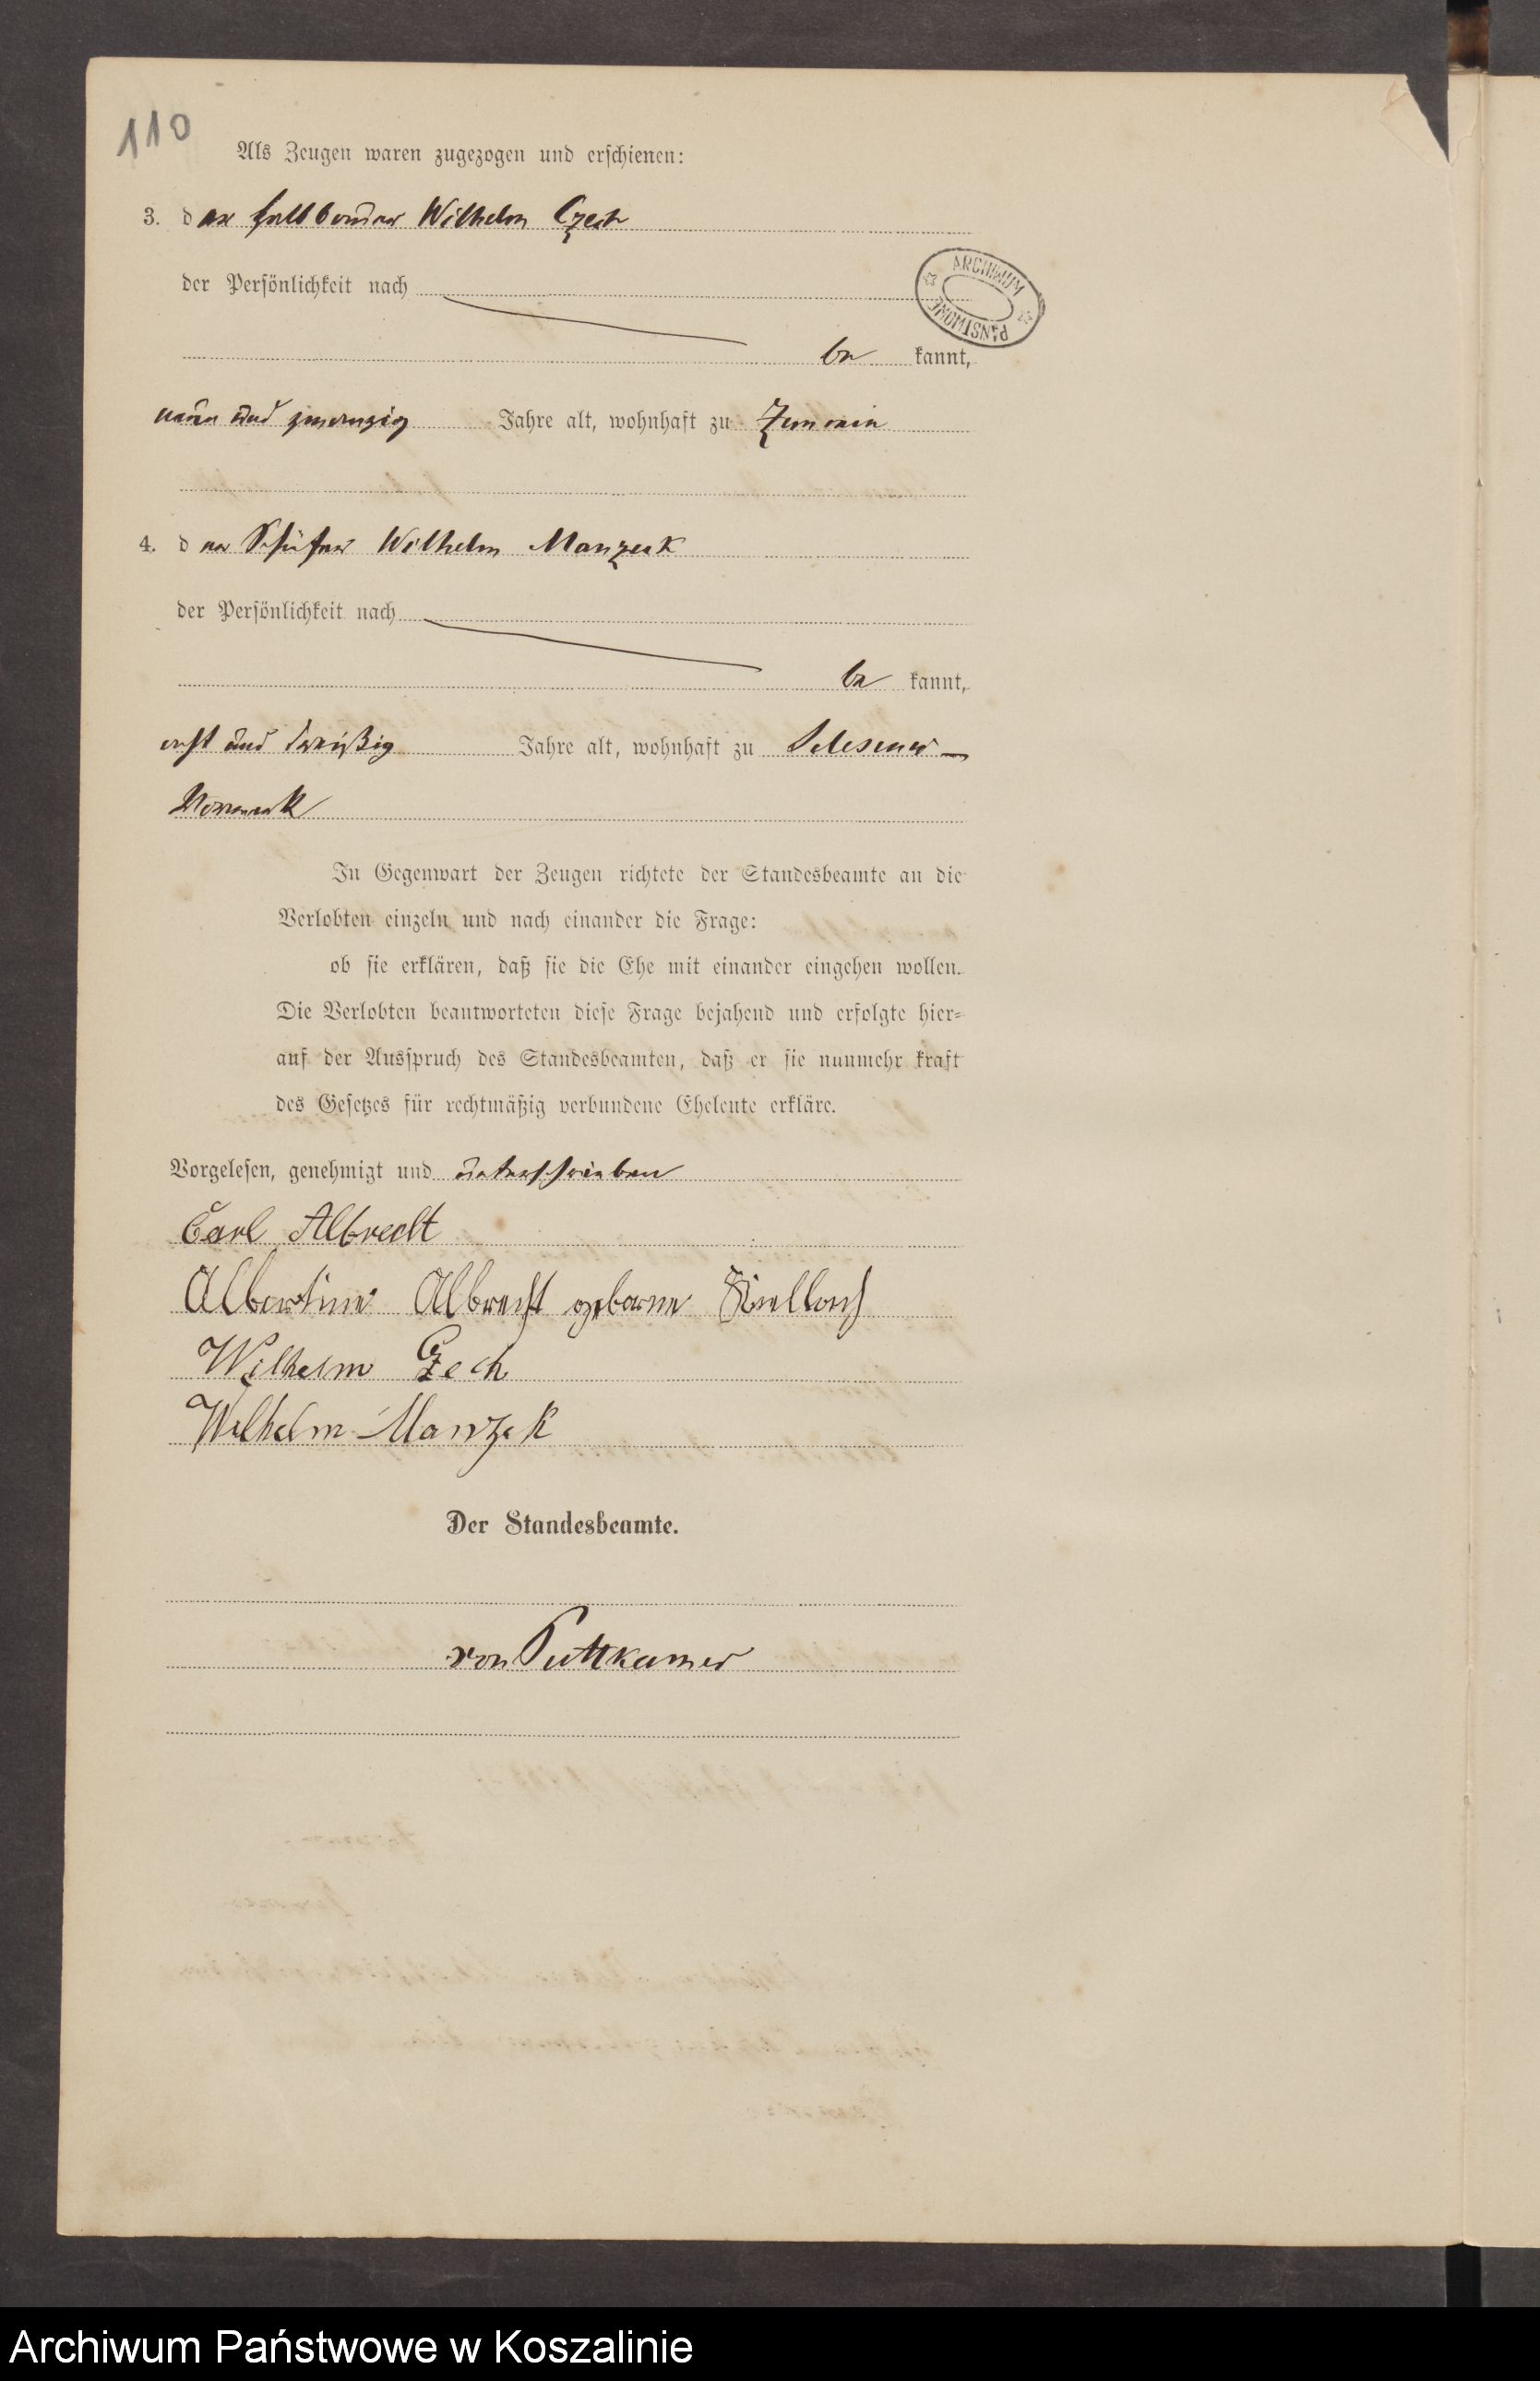 110
Als Zeugen waren zugezogen und erschienen:
3. der Halbbauer Wilhelm Czech
der Persönlichkeit nach
be kannt,
neun und zwanzig Jahre alt, wohnhaft zu Zemmin
4. der Schäfer Wilhelm Manzeck
der Persönlichkeit nach
be kannt,
acht und dreißig Jahre alt, wohnhaft zu
Vorwerk
In Gegenwart der Zeugen richtete der Standesbeamte an die
Verlobten einzeln und nach einander die Frage:
ob sie erklären, daß sie die Ehe mit einander eingehen wollen.
Die Verlobten beantworteten diese Frage bejahend und erfolgte hier-
auf der Ausspruch des Standesbeamten, daß er sie nunmehr kraft
des Gesetzes für rechtmäßig verbundene Eheleute erkläre.
Vorgelesen, genehmigt und unterschrieben
Carl Albrecht
Albertine Albrecht geborne
Wilhelm Czech
Wilhelm Manzek
Der Standesbeamte.
von Puttkamer
ARCHIWUM
PAŃSTWOWE
Archiwum Państwowe w Koszalinie